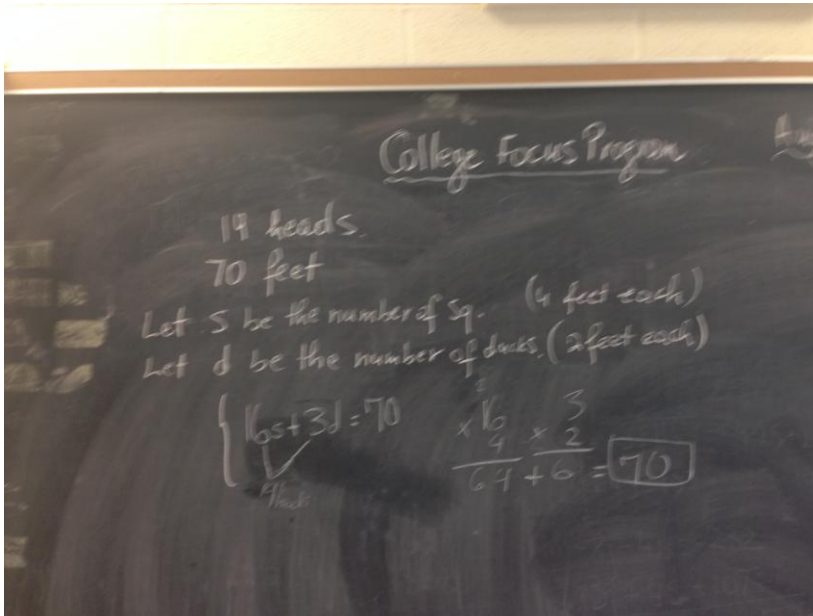 College Focus Program
19 heads.
70 feet
Let S be the number of Sq. (4 feet each)
Let d be the number of ducks. (2 feet each)
16s + 3d = 70
× 16 × 3
4 2
64 + 6 = 70